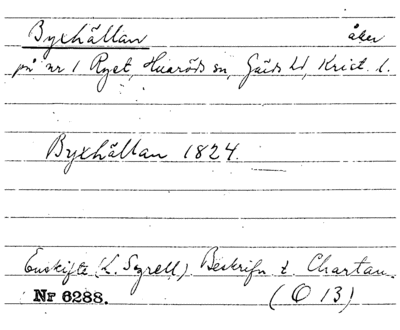 Byxhällan åker
på nr 1 Ryet, Huaröds sn, Gärds hd, Krist. l.
Byxhällan 1824.
Enskifte (L. Segrell) Beskrifn t. Chartan.
Nr 6288. (O 13)